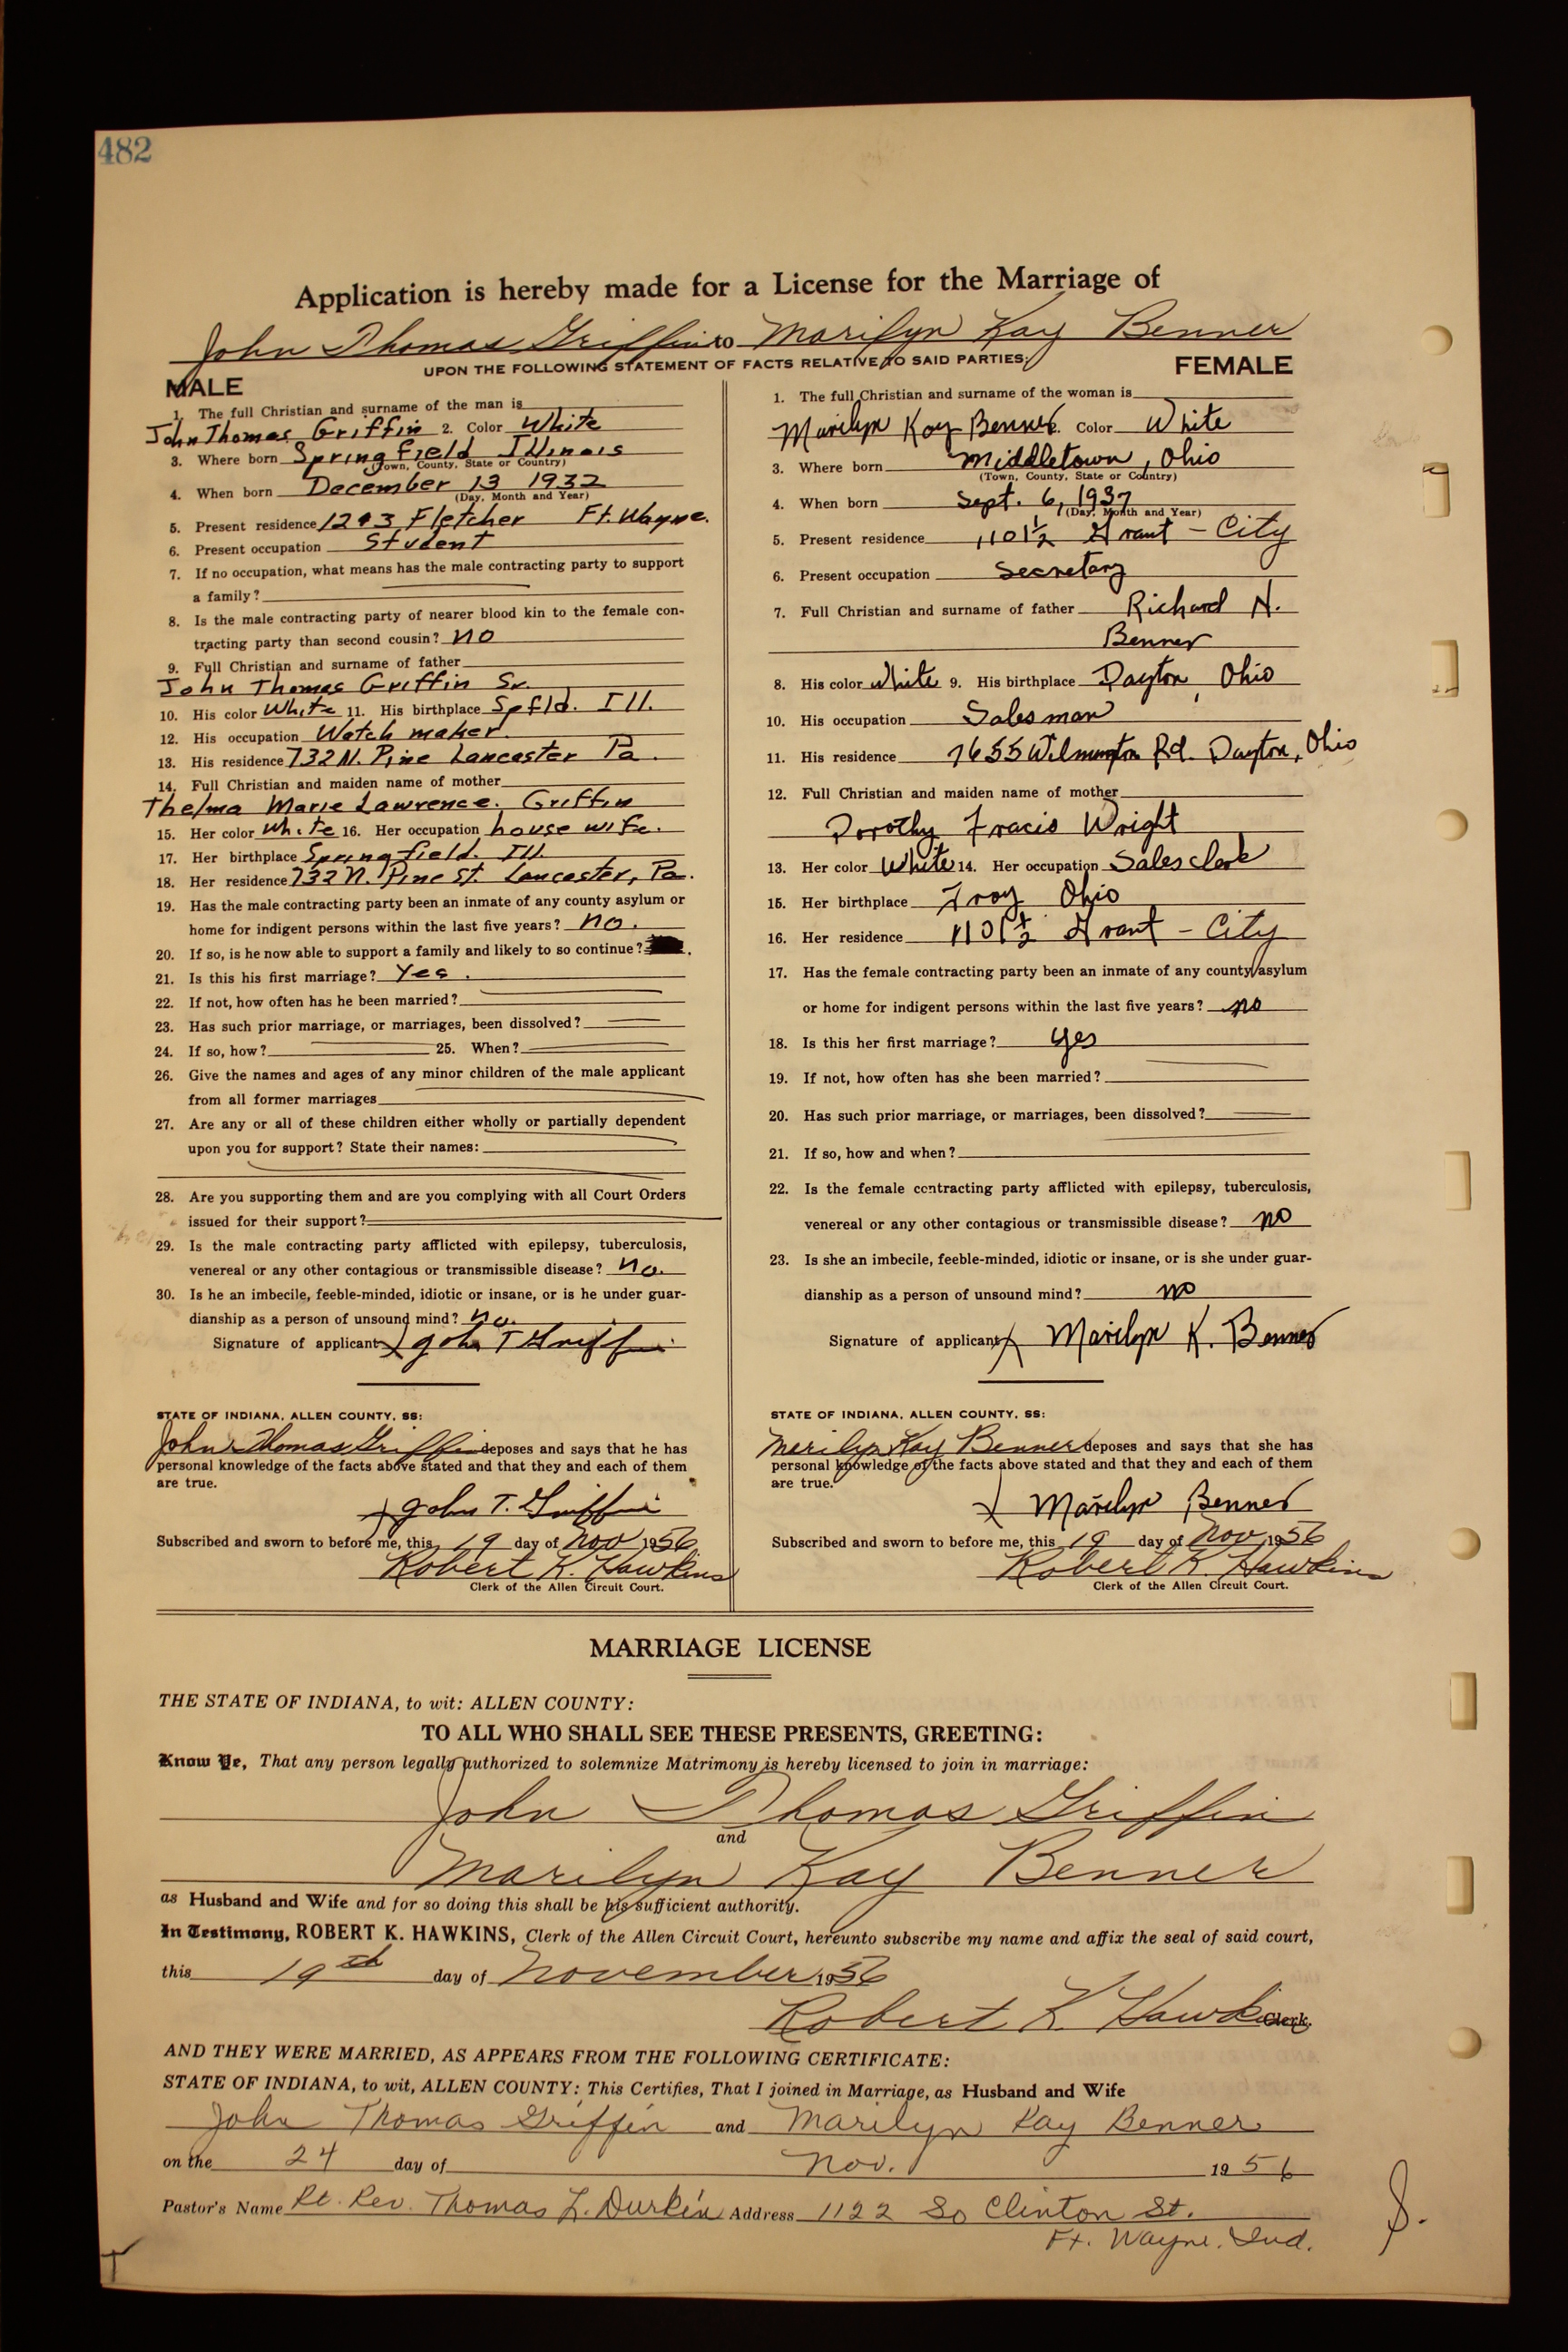 482
Application is hereby made for a License for the Marriage of
John Thomas Griffin to Marilyn Kay Benner
UPON THE FOLLOWING STATEMENT OF FACTS RELATIVE TO SAID PARTIES:
MALE
1. The full Christian and surname of the man is
John Thomas Griffin 2. Color White
3. Where born Springfield Illinois
(Town, County, State or Country)
4. When born December 13 1932
(Day, Month and Year)
5. Present residence Fletcher Ft. Wayne.
6. Present occupation Student
7. If no occupation, what means has the male contracting party to support
a family?
8. Is the male contracting party of nearer blood kin to the female con-
tracting party than second cousin? no
9. Full Christian and surname of father
John Thomas Griffin Sr.
10. His color White 11. His birthplace Spfld. Ill.
12. His occupation Watch maker.
13. His residence 732 N. Pine Lancaster Pa.
14. Full Christian and maiden name of mother
Thelma Marie Lawrence. Griffin
15. Her color white 16. Her occupation house wife.
17. Her birthplace Springfield. Ill.
18. Her residence 732 N. Pine St. Lancaster, Pa.
19. Has the male contracting party been an inmate of any county asylum or
home for indigent persons within the last five years? no.
20. If so, is he now able to support a family and likely to so continue?
21. Is this his first marriage? Yes.
22. If not, how often has he been married?
23. Has such prior marriage, or marriages, been dissolved?
24. If so, how? 25. When?
26. Give the names and ages of any minor children of the male applicant
from all former marriages
27. Are any or all of these children either wholly or partially dependent
upon you for support? State their names:
28. Are you supporting them and are you complying with all Court Orders
issued for their support?
29. Is the male contracting party afflicted with epilepsy, tuberculosis,
venereal or any other contagious or transmissible disease? no.
30. Is he an imbecile, feeble-minded, idiotic or insane, or is he under guar-
dianship as a person of unsound mind? no.
Signature of applicant John T Griffin
STATE OF INDIANA, ALLEN COUNTY, SS:
John Thomas Griffin deposes and says that he has
personal knowledge of the facts above stated and that they and each of them
are true.
John T. Griffin
Subscribed and sworn to before me, this 19 day of Nov 1956
Robert K. Hawkins
Clerk of the Allen Circuit Court.
FEMALE
1. The full Christian and surname of the woman is
Marilyn Kay Benner. Color White
3. Where born Middletown, Ohio
(Town, County, State or Country)
4. When born Sept. 6, 1937
(Day, Month and Year)
5. Present residence 1101½ Grant - City
6. Present occupation Secretary
7. Full Christian and surname of father Richard H.
Benner
8. His color White 9. His birthplace Dayton, Ohio
10. His occupation Salesman
11. His residence 7655 Wilmington Rd. Dayton, Ohio
12. Full Christian and maiden name of mother
Dorothy Fracis Wright
13. Her color White 14. Her occupation Sales clerk
15. Her birthplace Troy Ohio
16. Her residence 1101½ Grant - City
17. Has the female contracting party been an inmate of any county asylum
or home for indigent persons within the last five years? no
18. Is this her first marriage? yes
19. If not, how often has she been married?
20. Has such prior marriage, or marriages, been dissolved?
21. If so, how and when?
22. Is the female contracting party afflicted with epilepsy, tuberculosis,
venereal or any other contagious or transmissible disease? no
23. Is she an imbecile, feeble-minded, idiotic or insane, or is she under guar-
dianship as a person of unsound mind? no
Signature of applicant Marilyn K. Benner
STATE OF INDIANA, ALLEN COUNTY, SS:
Merilyn Kay Benner deposes and says that she has
personal knowledge of the facts above stated and that they and each of them
are true.
Marilyn Benner
Subscribed and sworn to before me, this 19 day of Nov 1956
Robert K. Hawkins
Clerk of the Allen Circuit Court.
MARRIAGE LICENSE
THE STATE OF INDIANA, to wit: ALLEN COUNTY:
TO ALL WHO SHALL SEE THESE PRESENTS, GREETING:
Know Ye, That any person legally authorized to solemnize Matrimony is hereby licensed to join in marriage:
John Thomas Griffin
and
Marilyn Kay Benner
as Husband and Wife and for so doing this shall be his sufficient authority.
In Testimony, ROBERT K. HAWKINS, Clerk of the Allen Circuit Court, hereunto subscribe my name and affix the seal of said court,
this 19th day of November 1956
Robert K Hawkins Clerk.
AND THEY WERE MARRIED, AS APPEARS FROM THE FOLLOWING CERTIFICATE:
STATE OF INDIANA, to wit, ALLEN COUNTY: This Certifies, That I joined in Marriage, as Husband and Wife
John Thomas Griffin and Marilyn Kay Benner
on the 24 day of Nov. 1956
Pastor's Name Rt. Rev. Thomas L. Durkin Address 1122 So Clinton St.
Ft. Wayne. Ind.